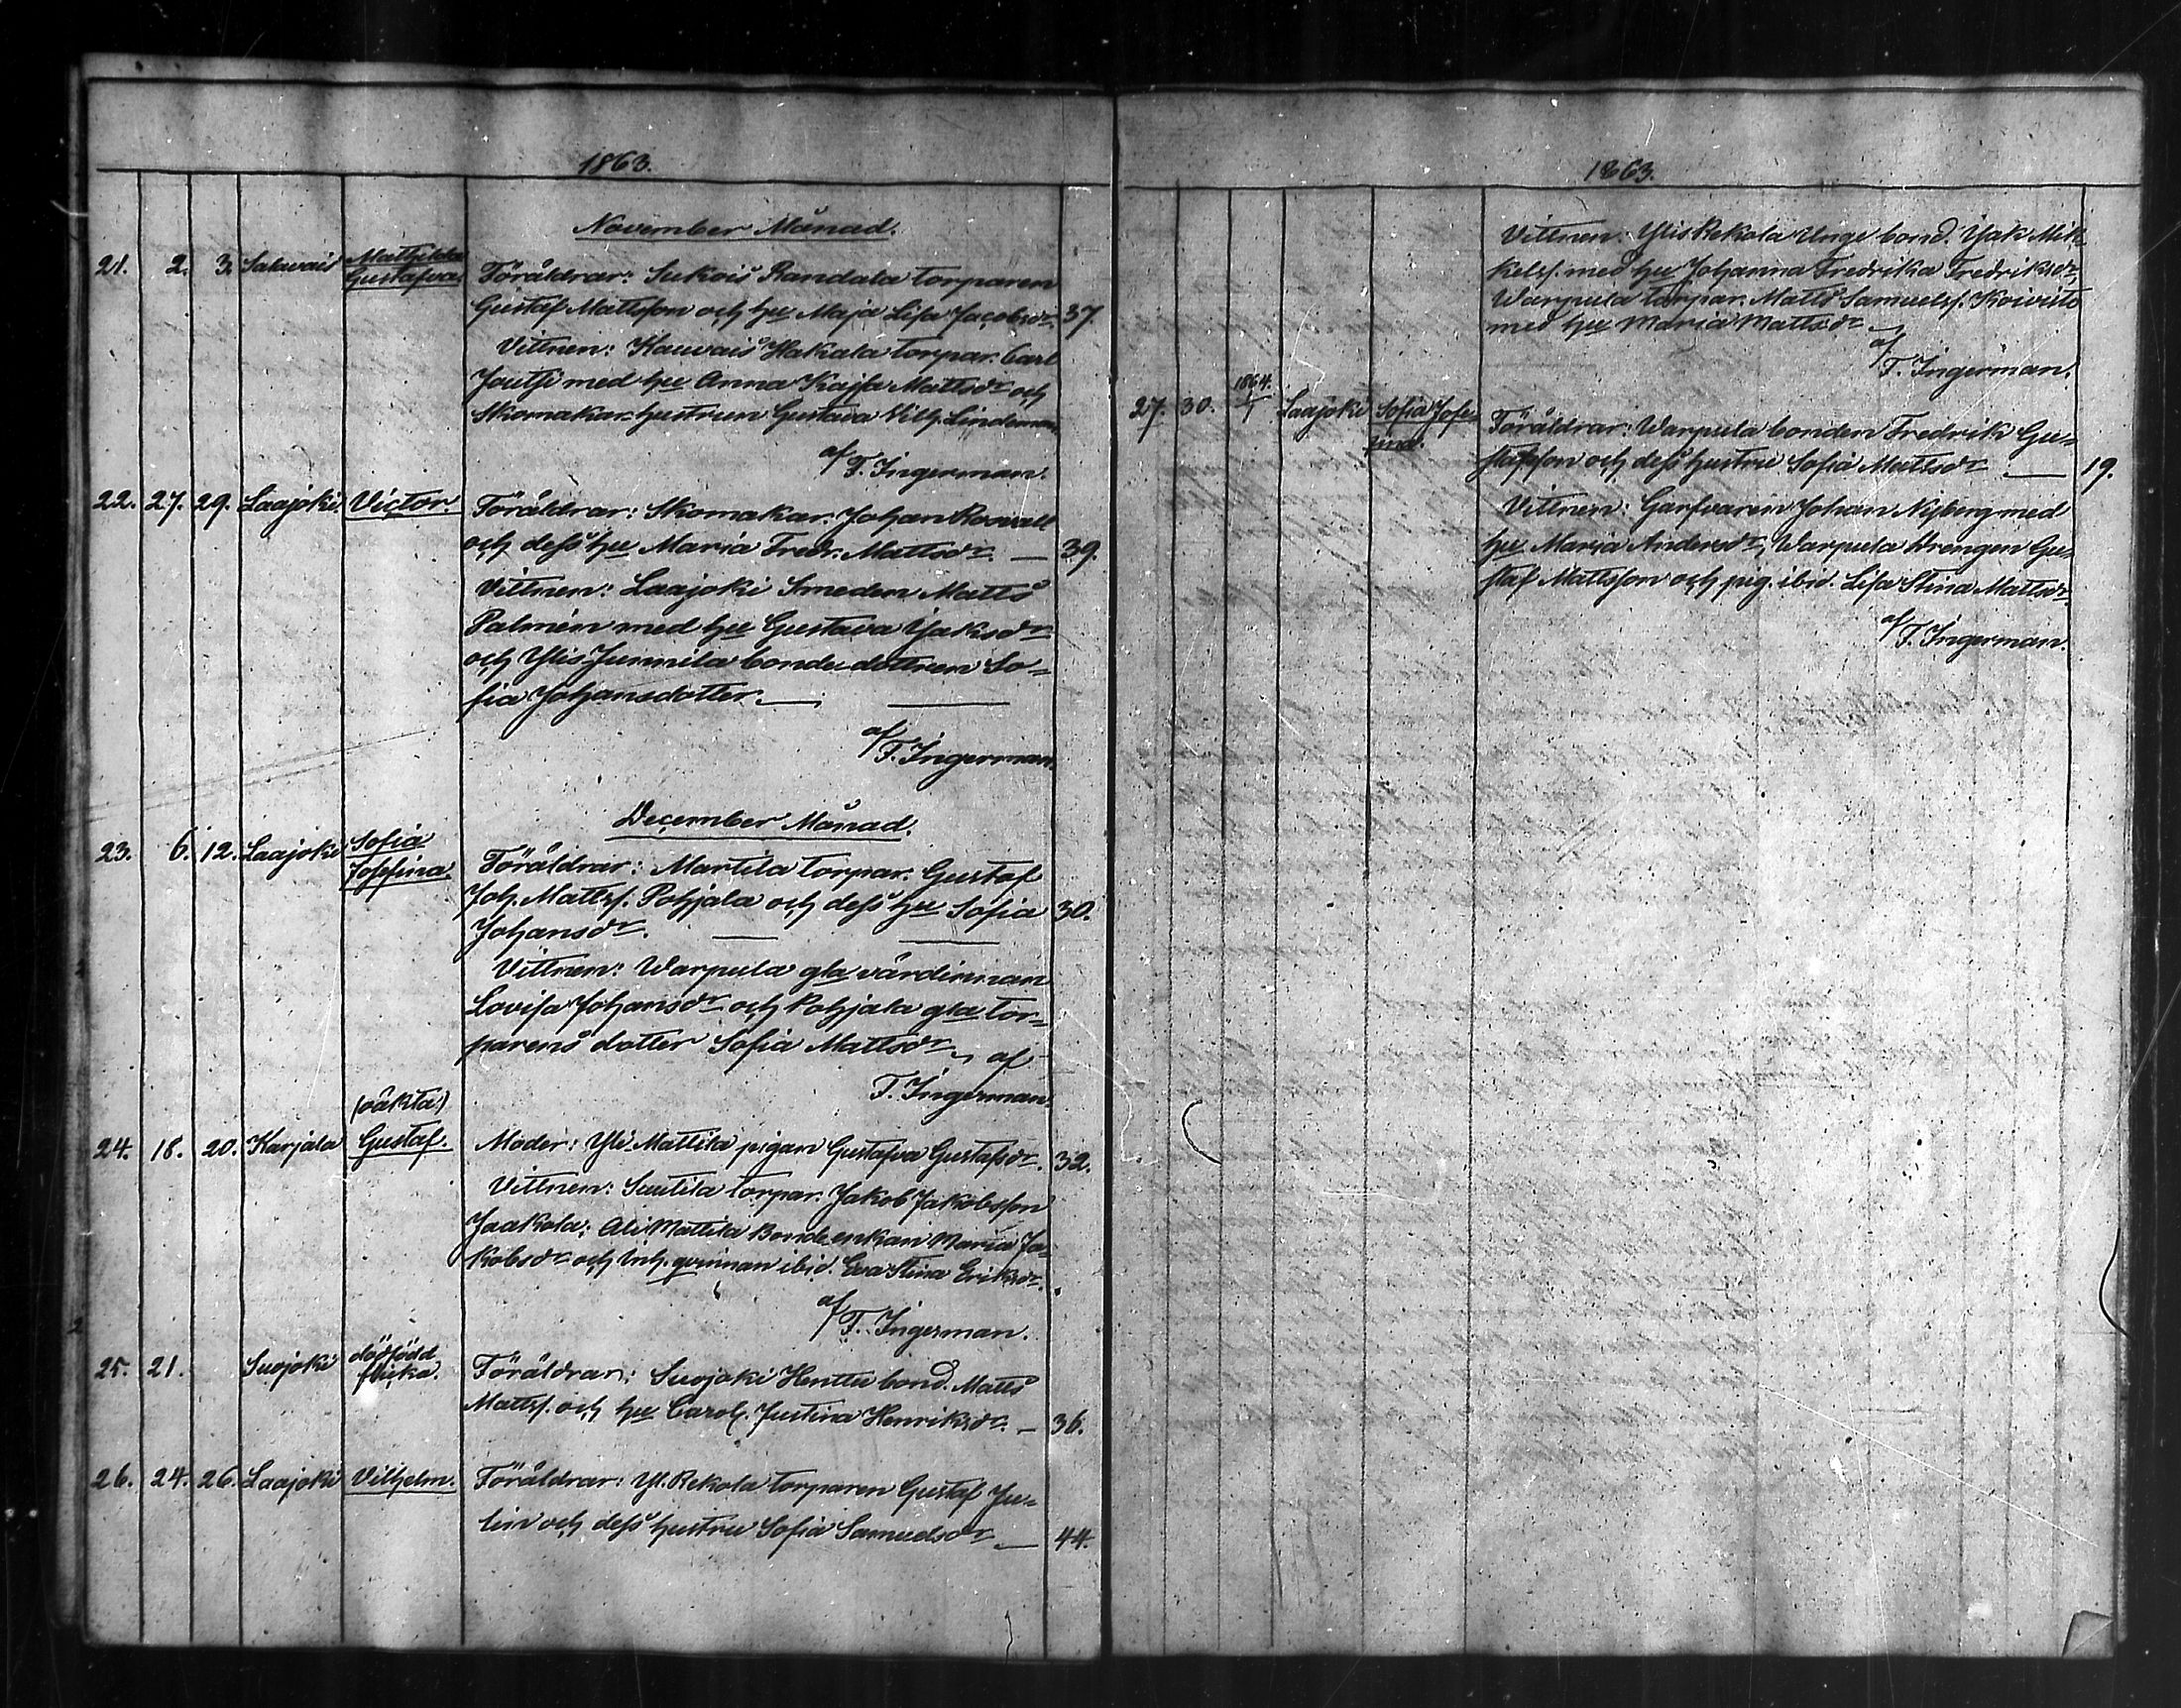 1863.
November Månad.
21. 2. 3. Salavais Mathilda Gustafva. Föräldrar: Sukois Randala torparen
Gustaf Mattsson och hu Maja Lisa Jacobsdr. 37.
Vittnen: Kauvais Hakala torpar. Carl
med hu Anna Kajsa Mattsdr och
Skomakar-hustrun Gustava Vilh. Lindeman.
af
F. Ingerman.
22. 27. 29. Laajoki Victor. Föräldrar: Skomakar. Johan Rosvall
och dess hu Maria Fredr. Mattsdr. — 39.
Vittnen: Laajoki Smeden Matts
Palmén med hu Gustava Isaksdr
och Ylis Junnila bondedottren So-
fia Johansdotter. —
af
F. Ingerman.
December Månad.
23. 6. 12. Laajoki Sofia Josefina. Föräldrar: Martila torpar. Gustaf
Joh. Mattss. Pohjala och dess hu Sofia 30.
Johansdr. —
Vittnen: Warpula gla värdinnan
Lovisa Johansdr och Pohjala gla tor-
parens dotter Sofia Mattsdr, af
F. Ingerman.
(oäkta)
24. 18. 20. Karjala Gustaf. Moder: Yli-Mattila pigan Gustafva Gustafsdr. 32.
Vittnen: Suutila torpar. Jakob Jakobsson
Jaakola; Ali Mattila Bondeenkan Maria Ja-
kobsdr och Inh. qvinnan ibid. Eva Stina Eriksdr.
af
F. Ingerman.
25. 21. Suojoki dödfödd flicka. Föräldrar: Suojoki Henttu bond. Matts
Mattss. och hu Carol. Justina Henriksdr. — 36.
26. 24. 26. Laajoki Vilhelm. Föräldrar: Yl. Rekola torparen Gustaf Ju-
lin och dess hustru Sofia Samuelsdr — 44.
1863.
Vittnen: Ylis Rekola Unge bond. Isak Mik-
kelss. med hu Johanna Fredrika Fredriksdr,
Warpula torpar. Matts Samuelss. Koivisto
med hu Maria Mattsdr
af
F. Ingerman.
27. 30. 1864. 1/1 Laajoki Sofia Josefina. Föräldrar: Warpula bonden Fredrik Gu-
stafsson och dess hustru Sofia Mattsdr — 19.
Vittnen: Garfvaren Johan Nyberg med
hu Maria Andersdr, Warpula Drengen Gu-
staf Mattsson och pig. ibid. Lisa Stina Mattsdr.
af
F. Ingerman.